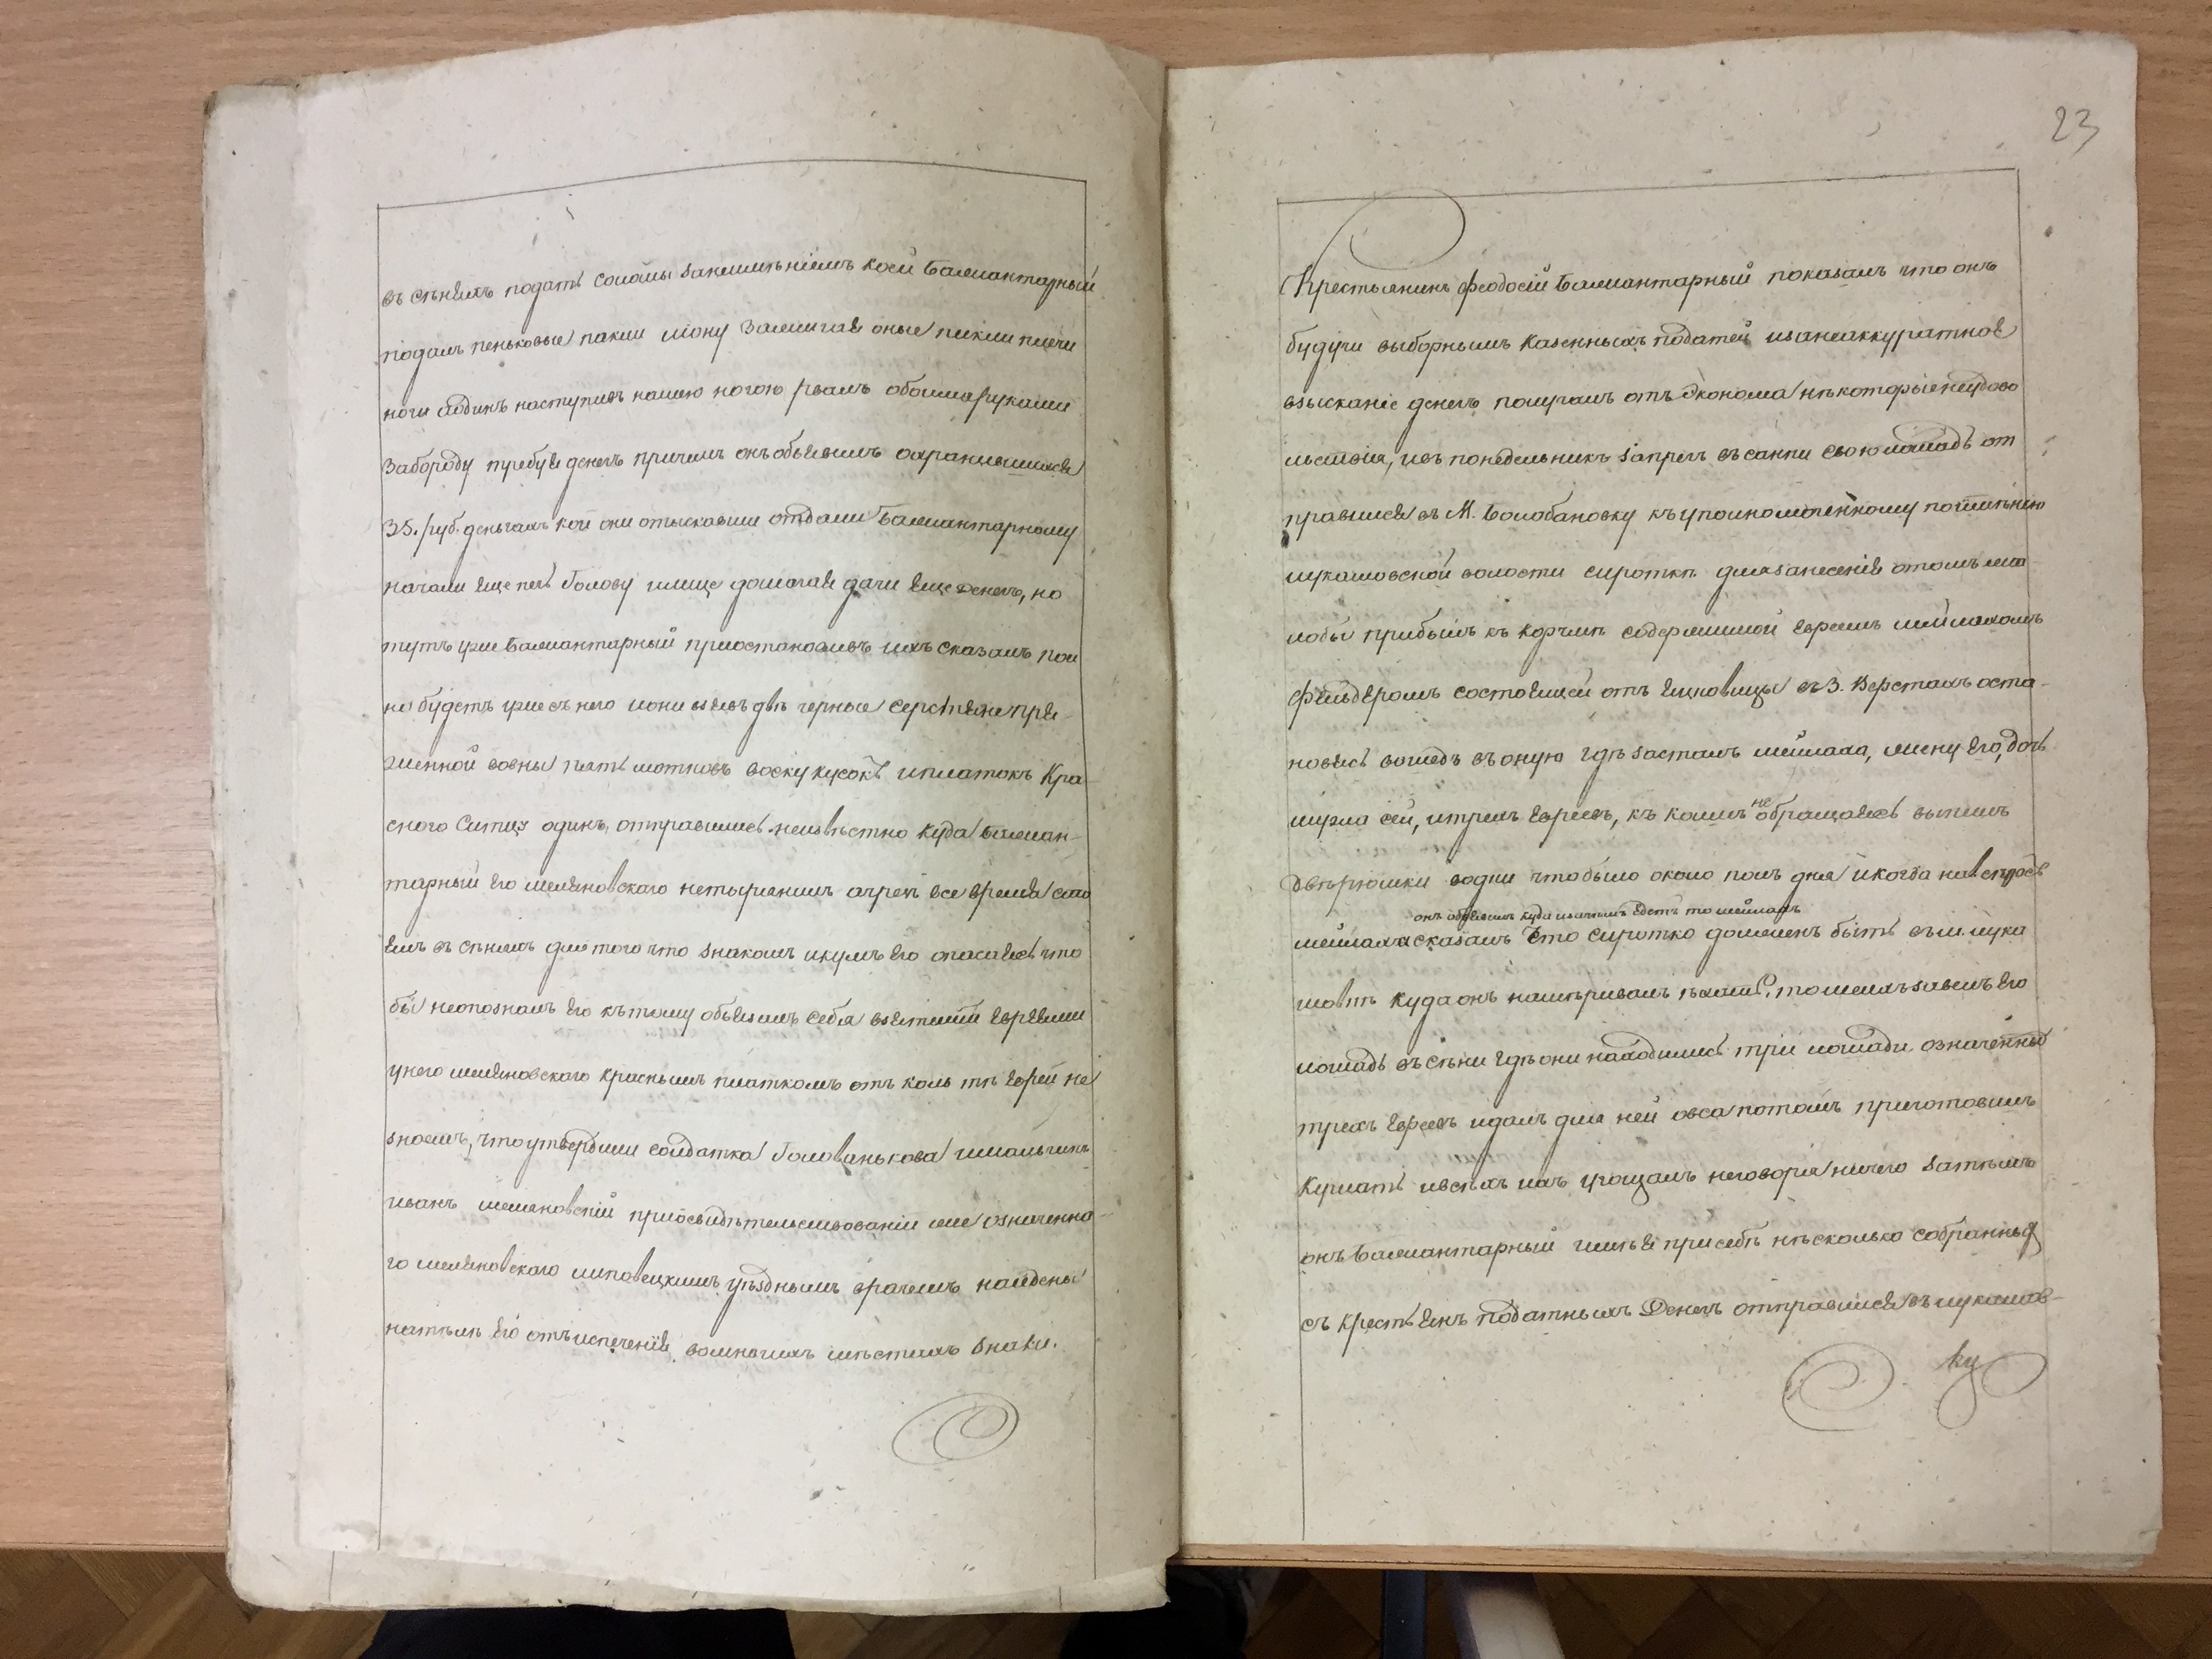 въ сѣняхъ подать соломы занеимѣніемъ коей Балмантарный
подалъ пеньковые паклы и ону зажигая оные пикли плечи
ноги аодинъ наступивъ нашею ногою рвалъ обоими руками
Забороду требуя денегъ причемъ онъ объявилъ охранившихся
35. руб. деньгахъ кои они отыскавши отдали Балмантарному
начали еще печь Голову илице домогая дачи еще денегъ, но
тутъ уже Балмантарный приостановивъ ихъ сказалъ пол
но будетъ уже съ него иони взявъ двѣ черные серстяне пря-
женной вовны пять мотковъ воску кусокъ иплатокъ Кра-
сного Ситцу одинъ, отправились неизвѣстно куда Балман-
тарный его меляновского немучилъ ачрез все время сто
ялъ въ сѣняхъ для того что знакомъ икумъ его опасаясь что
бы неопозналъ его къ тому обвязалъ себя взятымъ Евреями
унего меляновского краснымъ платкомъ отъ коль тѣ Евреи не
зналъ, что утвердили солдатка Головянькова имальчикъ
иванъ меляновскій приосвидѣтельствованіи же означенно-
го меляновского липовецкимъ уѣзднымъ врачемъ найдены
натѣлѣ его отъ испеченія вомногихъ мѣстахъ знаки.
23
Крестьянинъ Феодосій Балмантарный показалъ что онъ
будучи выборнымъ Казенныхъ податей изанеаккуратное
взысканіе денегъ получалъ отъ Эконома нѣкоторые неудово
льствія, ивъ понедельникъ запрегъ въ санки свою лошадь от
правился въ М. Болобановку къ уполномоченному помѣщику
лукашовской волости сироткѣ для занесенія отомъ жа
лобы прибылъ къ корчмѣ содержимой Евреемъ шмилахомъ
Фельдеромъ состоящей отъ Ицковицы въ 3. верстахъ оста-
новясь вошедъ въ оную гдѣ засталъ шмилаха, жену его, дочь
мирла сей, итрехъ Евреевъ, къ коимъ не обращаясь выпилъ
Двѣ рюмки водки что было около полъ дня икогда навопросъ
онъ объявилъ куда изачемъ едетъ то шмилахъ
шмилаха сказалъ что Сиротко долженъ быть въ м лука
шовкѣ куда онъ намѣривалъ ѣхать, тошмилахъ завелъ его
лошадь въ сѣни гдѣ они находились три лошади означенныхъ
трехъ Евреевъ идалъ для ней овса потомъ приготовилъ
Кушать ивсѣхъ ихъ угощалъ неговоря ничего затѣмъ
онъ Балмантарный имѣя при себѣ нѣсколько собранныхъ
съ крестьянъ податныхъ Денегъ отправился въ лукашов-
ку